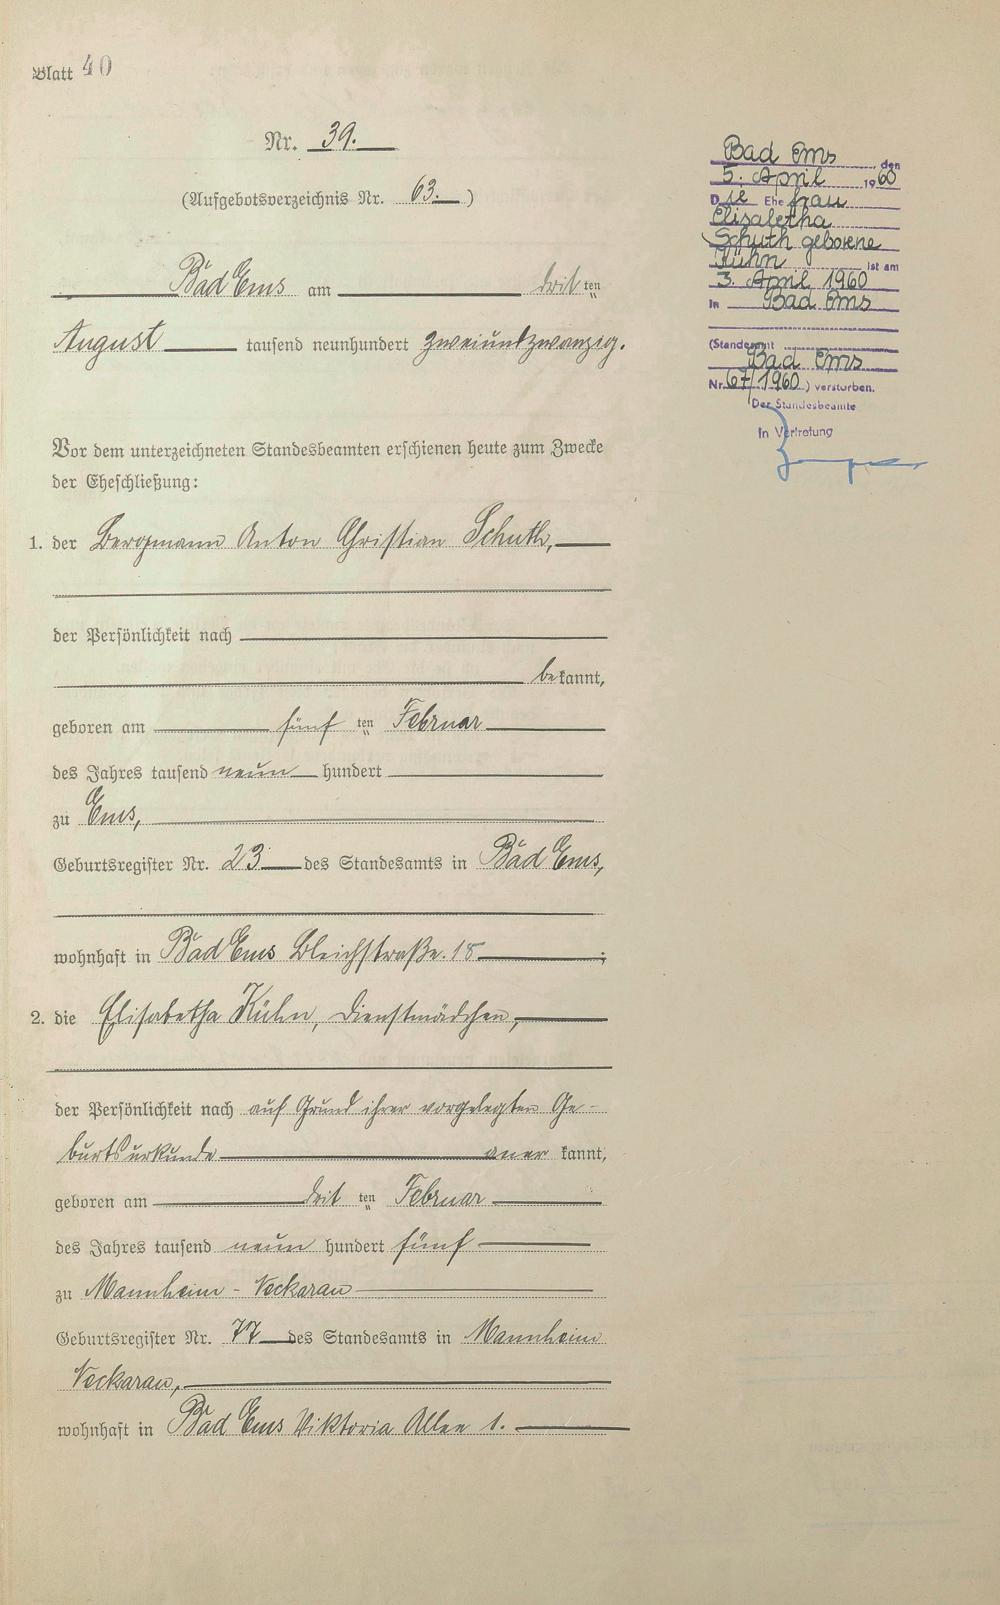 Blatt 40
Nr. 39.
(Aufgebotsverzeichnis Nr. 63.)
Bad Ems am drit ten
August tausend neunhundert zweiundzwanzig.
Vor dem unterzeichneten Standesbeamten erschienen heute zum Zwecke
der Eheschließung:
1. der Bergmann Anton Christian Schuth,
der Persönlichkeit nach
bekannt,
geboren am fünf ten Februar
des Jahres tausend neun hundert
zu Ems,
Geburtsregister Nr. 23 des Standesamts in Bad Ems,
wohnhaft in Bad Ems Bleichstraße. 18 ;
2. die Elisabetha Kühn, Dienstmädchen,
der Persönlichkeit nach auf Grund ihrer vorgelegten Ge-
burtsurkunde aner kannt,
geboren am drit ten Februar
des Jahres tausend neun hundert fünf
zu Mannheim - Neckarau
Geburtsregister Nr. 77 des Standesamts in Mannheim
Neckarau,
wohnhaft in Bad Ems Viktoria Allee 1.
Bad Ems, den
5. April 1960
Die Ehefrau
Elisabetha
Schuth geborene
Kühn ist am
3. April 1960
in Bad Ems
(Standesamt
Bad Ems
Nr. 67/1960) verstorben.
Der Standesbeamte
In Vertretung